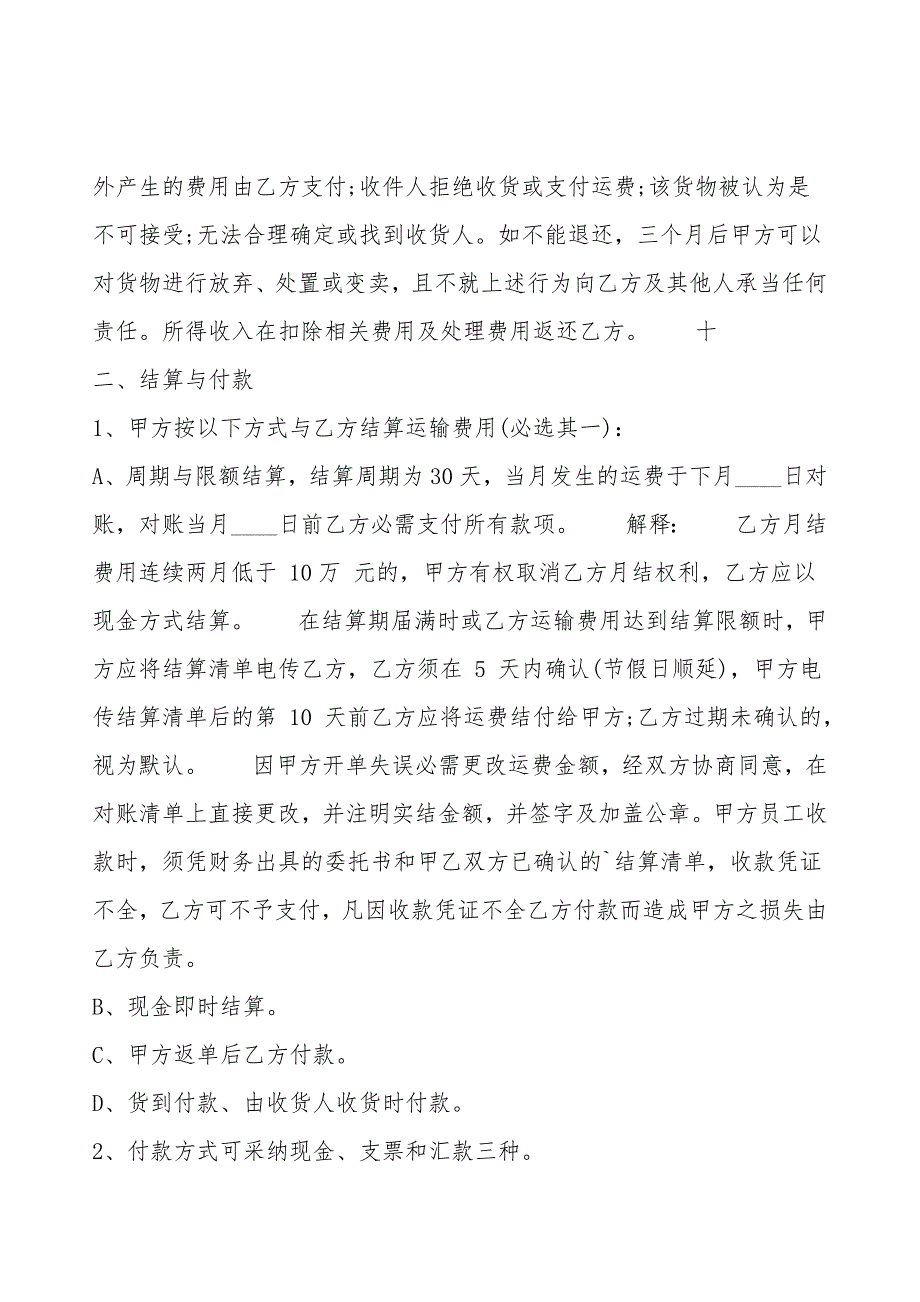 外产生的费用由乙方支付;收件人拒绝收货或支付运费;该货物被认为是
不可接受;无法合理确定或找到收货人。如不能退还，三个月后甲方可以
对货物进行放弃、处置或变卖，且不就上述行为向乙方及其他人承当任何
责任。所得收入在扣除相关费用及处理费用返还乙方。　　十
二、结算与付款
1、甲方按以下方式与乙方结算运输费用(必选其一)：
A、周期与限额结算，结算周期为30天，当月发生的运费于下月____日对
账，对账当月____日前乙方必需支付所有款项。　　解释：　　乙方月结
费用连续两月低于 10万 元的，甲方有权取消乙方月结权利，乙方应以
现金方式结算。　　在结算期届满时或乙方运输费用达到结算限额时，甲
方应将结算清单电传乙方，乙方须在 5 天内确认(节假日顺延)，甲方电
传结算清单后的第 10 天前乙方应将运费结付给甲方;乙方过期未确认的，
视为默认。　　因甲方开单失误必需更改运费金额，经双方协商同意，在
对账清单上直接更改，并注明实结金额，并签字及加盖公章。甲方员工收
款时，须凭财务出具的委托书和甲乙双方已确认的`结算清单，收款凭证
不全，乙方可不予支付，凡因收款凭证不全乙方付款而造成甲方之损失由
乙方负责。
B、现金即时结算。
C、甲方返单后乙方付款。
D、货到付款、由收货人收货时付款。
2、付款方式可采纳现金、支票和汇款三种。